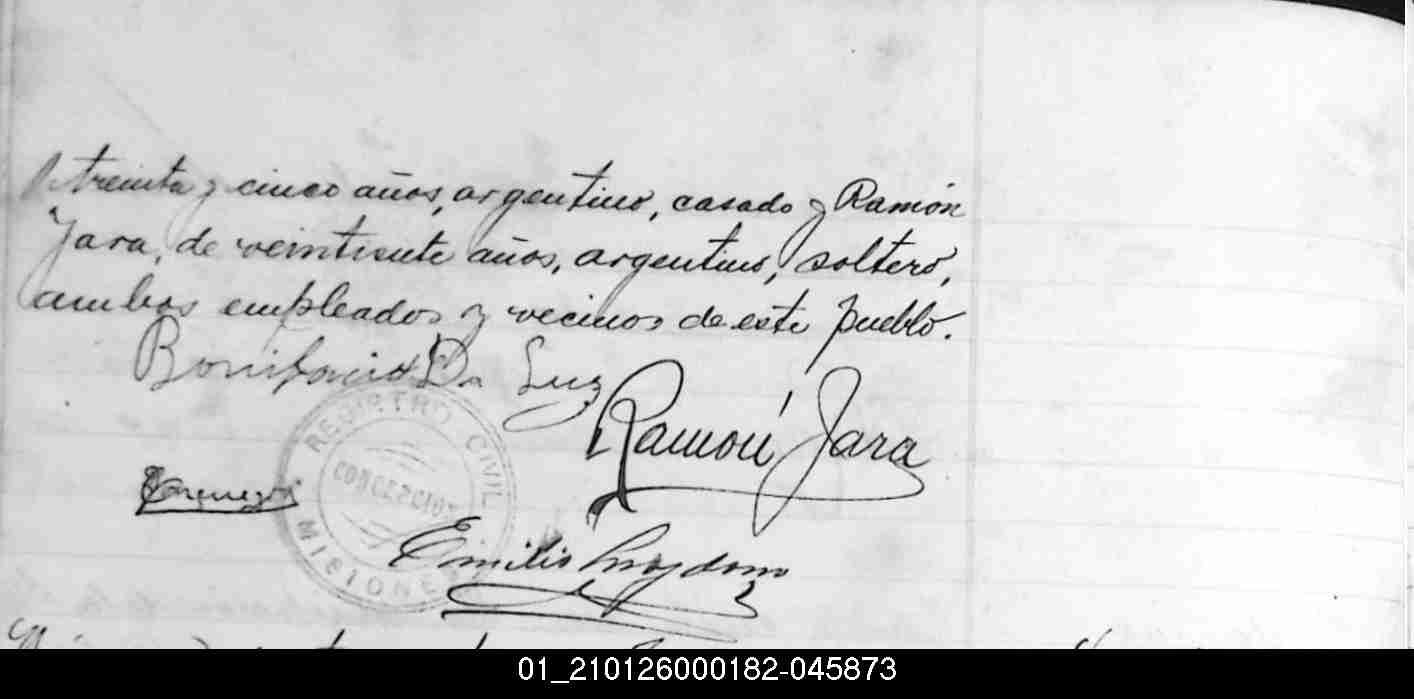 treinta y cinco años, argentino, casado y Ramón
Jara, de veintisiete años, argentino, soltero,
ambos empleados y vecinos de este pueblo.
Bonifacio Da Luz
Ramón Jara
REGISTRO CIVIL
CONCEPCION
MISIONES
Emilio
01_210126000182-045873